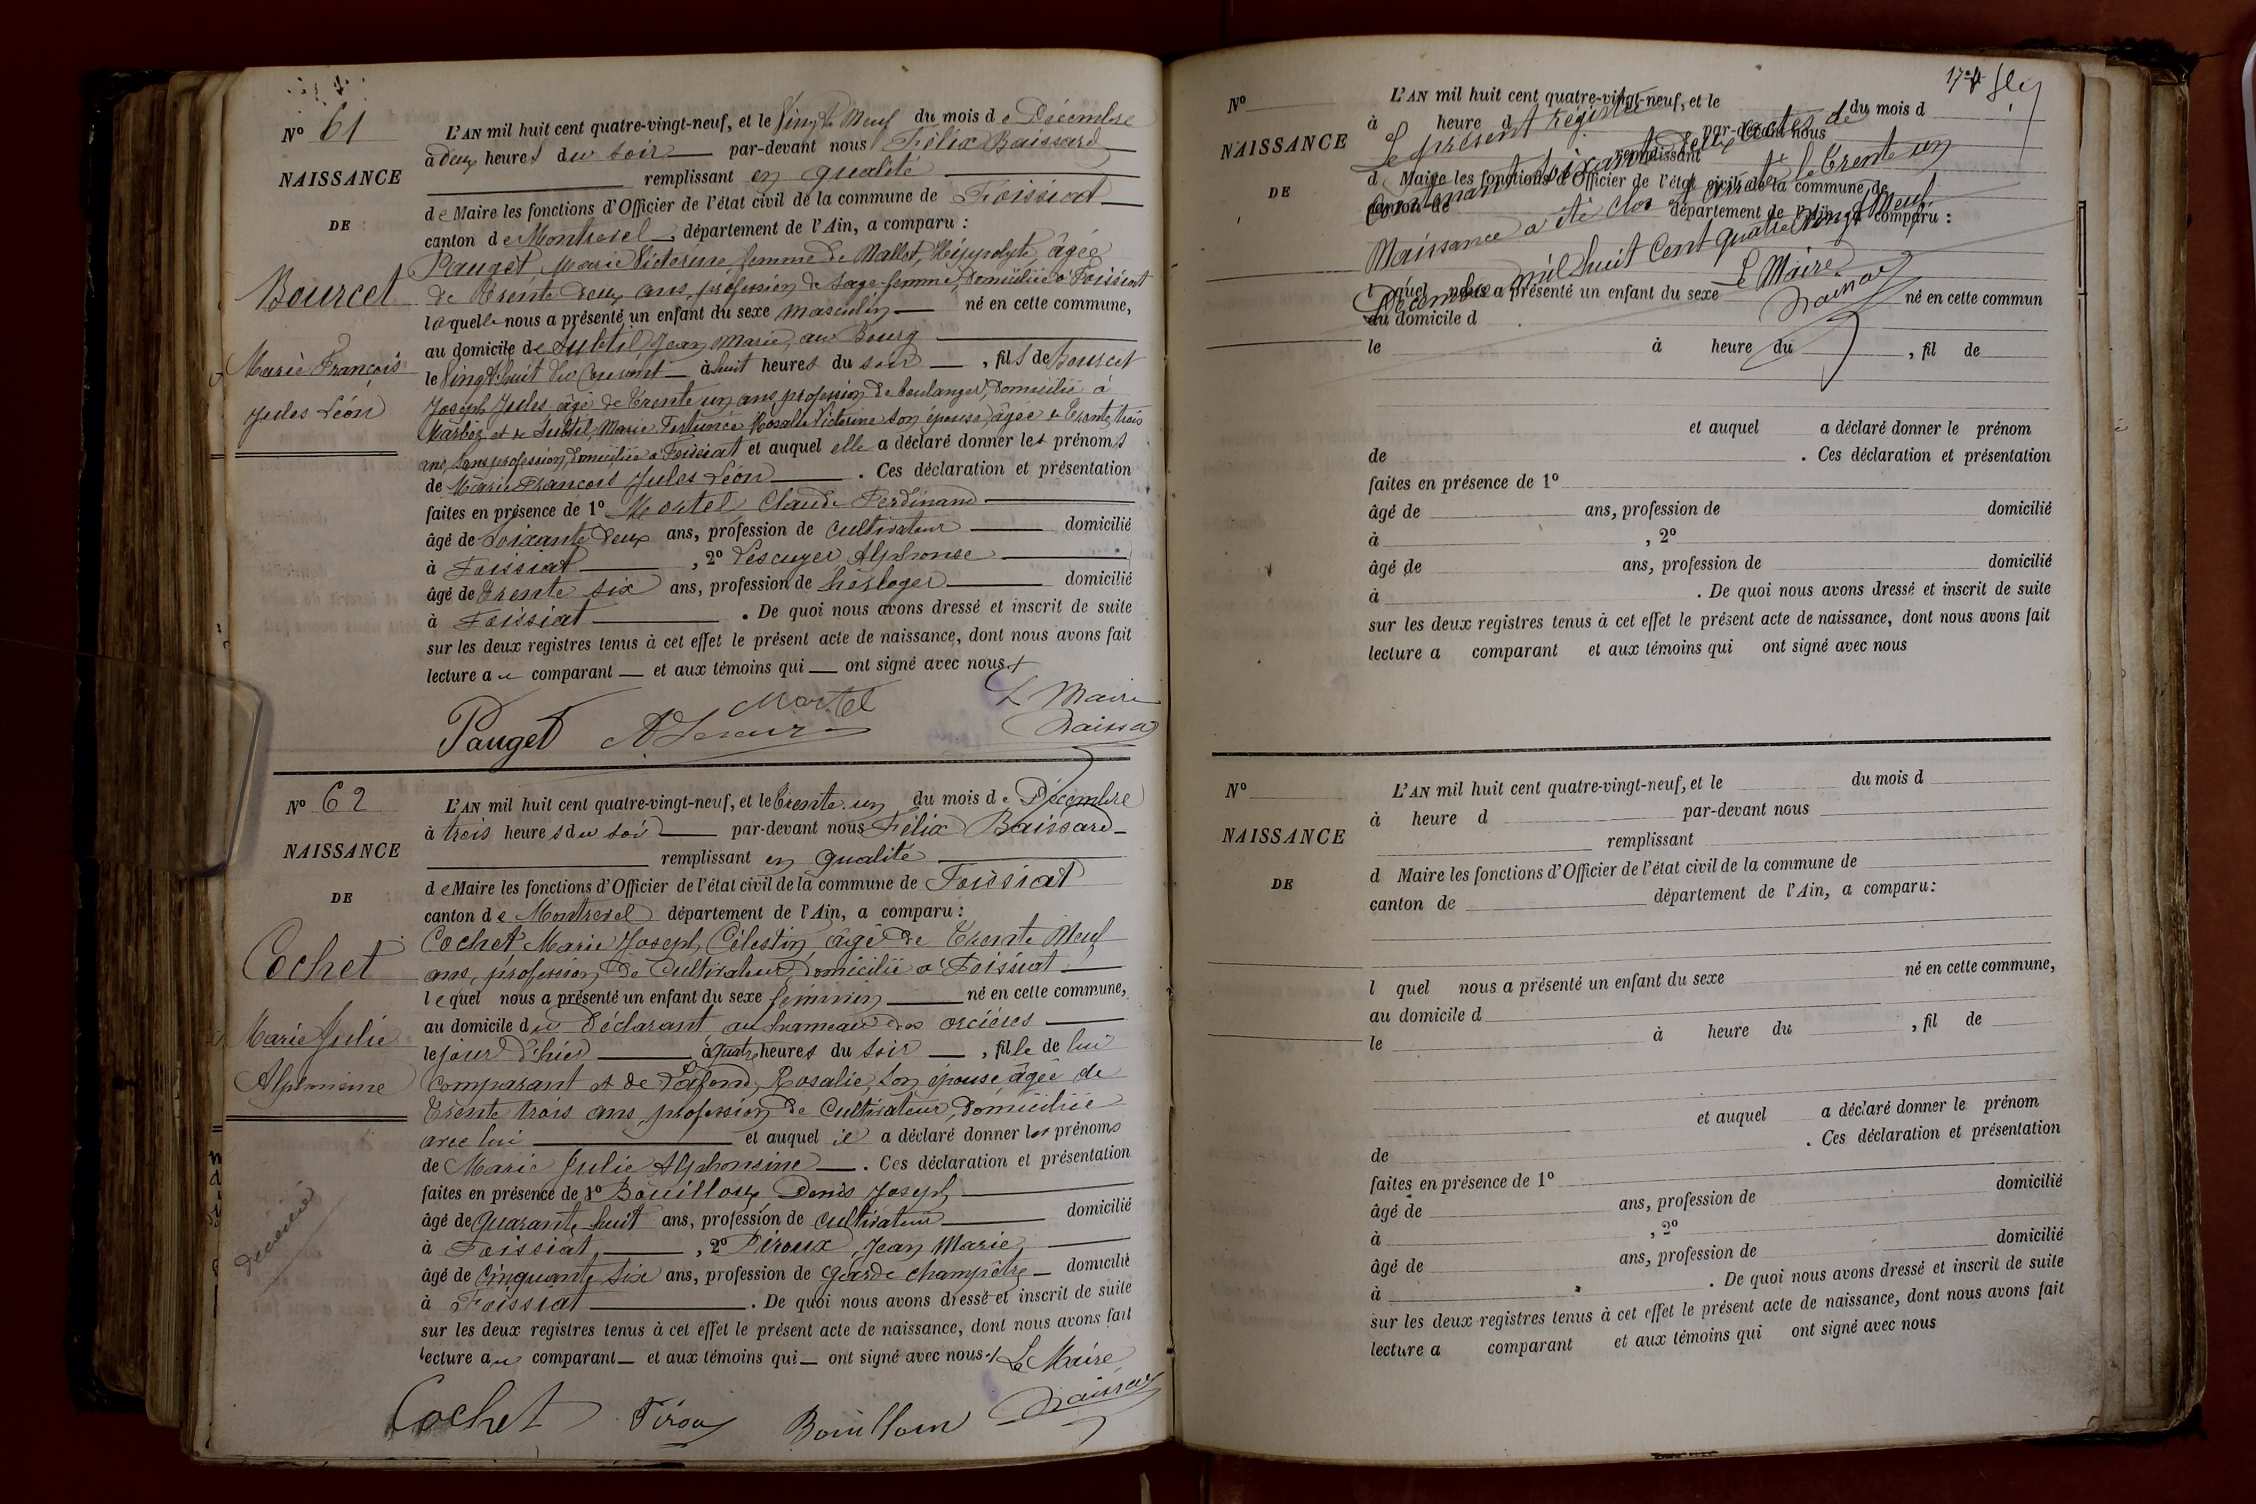 Nº 61
NAISSANCE
DE
Bourcet
Marie François
Jules Léon
L'AN mil huit cent quatre-vingt-neuf, et le Vingt Neuf du mois de Décembre
à deux heures du soir par-devant nous Félix Baissard
remplissant en qualité
de Maire les fonctions d'Officier de l'état civil de la commune de Foissiat
canton de Montrevel, département de l'Ain, a comparu :
Pauget, Marie Victorine, femme de Mallet, Hippolyte, âgée
de Trente deux ans, profession de Sage-femme, domiciliée à Foissiat
laquelle nous a présenté un enfant du sexe masculin né en cette commune,
au domicile de Subtil, Jean Marie, au Bourg
le Vingt huit du Courant à huit heures du soir, fils de Bourcet
Joseph Jules âgé de Trente un ans, profession de boulanger, domicilié à
Marboz et de Subtil, Marie Fortunée Rosalie Victorine son épouse, âgée de Trente trois
ans, sans profession, domiciliée à Foissiat et auquel elle a déclaré donner les prénoms
de Marie François Jules Léon. Ces déclaration et présentation
faites en présence de 1º Mortel Claude Ferdinand
âgé de Soixante deux ans, profession de Cultivateur domicilié
à Foissiat, 2º Lescuyer Alphonse
âgé de Trente six ans, profession de horloger domicilié
à Foissiat. De quoi nous avons dressé et inscrit de suite
sur les deux registres tenus à cet effet le présent acte de naissance, dont nous avons fait
lecture au comparant et aux témoins qui ont signé avec nous
Mortel
Le Maire
Pauget
Nº 62
NAISSANCE
DE
Cochet
Marie Julie
Alphonsine
décédée
L'AN mil huit cent quatre-vingt-neuf, et le Trente un du mois de Décembre
à trois heures du soir par-devant nous Félix Baissard
remplissant en qualité
de Maire les fonctions d'Officier de l'état civil de la commune de Foissiat
canton de Montrevel département de l'Ain, a comparu :
Cochet Marie Joseph Célestin âgé de Trente Neuf
ans, profession de Cultivateur, domicilié à Foissiat
lequel nous a présenté un enfant du sexe féminin né en cette commune,
au domicile du déclarant au hameau des orcières
le jour d'hier à quatre heures du soir, fille de lui
comparant et de Lafond, Rosalie, son épouse âgée de
Trente trois ans, profession de Cultivateur, domiciliée
avec lui et auquel il a déclaré donner les prénoms
de Marie Julie Alphonsine. Ces déclaration et présentation
faites en présence de 1º Bouilloux Denis Joseph
âgé de Quarante huit ans, profession de cultivateur domicilié
à Foissiat, 2º Firoux, Jean Marie,
âgé de Cinquante six ans, profession de Garde champêtre domicilié
à Foissiat. De quoi nous avons dressé et inscrit de suite
sur les deux registres tenus à cet effet le présent acte de naissance, dont nous avons fait
lecture au comparant et aux témoins qui ont signé avec nous
Le Maire
Cochet
Nº
NAISSANCE
DE
L'AN mil huit cent quatre-vingt-neuf, et le du mois d
à heure d par-devant nous
remplissant
d Maire les fonctions d'Officier de l'état civil de la commune de
canton de département de l'Ain, a comparu :
Le présent Registre
Contenant soixante deux actes de
Naissance a été Clos et arrêté le Trente un
Décembre mil huit Cent quatre vingt Neuf
Le Maire
l quel nous a présenté un enfant du sexe né en cette commun
au domicile d
le à heure du , fil de
et auquel a déclaré donner le prénom
de . Ces déclaration et présentation
faites en présence de 1º
âgé de ans, profession de domicilié
à , 2º
âgé de ans, profession de domicilié
à . De quoi nous avons dressé et inscrit de suite
sur les deux registres tenus à cet effet le présent acte de naissance, dont nous avons fait
lecture a comparant et aux témoins qui ont signé avec nous
Nº
NAISSANCE
DE
L'AN mil huit cent quatre-vingt-neuf, et le du mois d
à heure d par-devant nous
remplissant
d Maire les fonctions d'Officier de l'état civil de la commune de
canton de département de l'Ain, a comparu :
l quel nous a présenté un enfant du sexe né en cette commune,
au domicile d
le à heure du , fil de
et auquel a déclaré donner le prénom
de . Ces déclaration et présentation
faites en présence de 1º
âgé de ans, profession de domicilié
à , 2º
âgé de ans, profession de domicilié
à . De quoi nous avons dressé et inscrit de suite
sur les deux registres tenus à cet effet le présent acte de naissance, dont nous avons fait
lecture a comparant et aux témoins qui ont signé avec nous